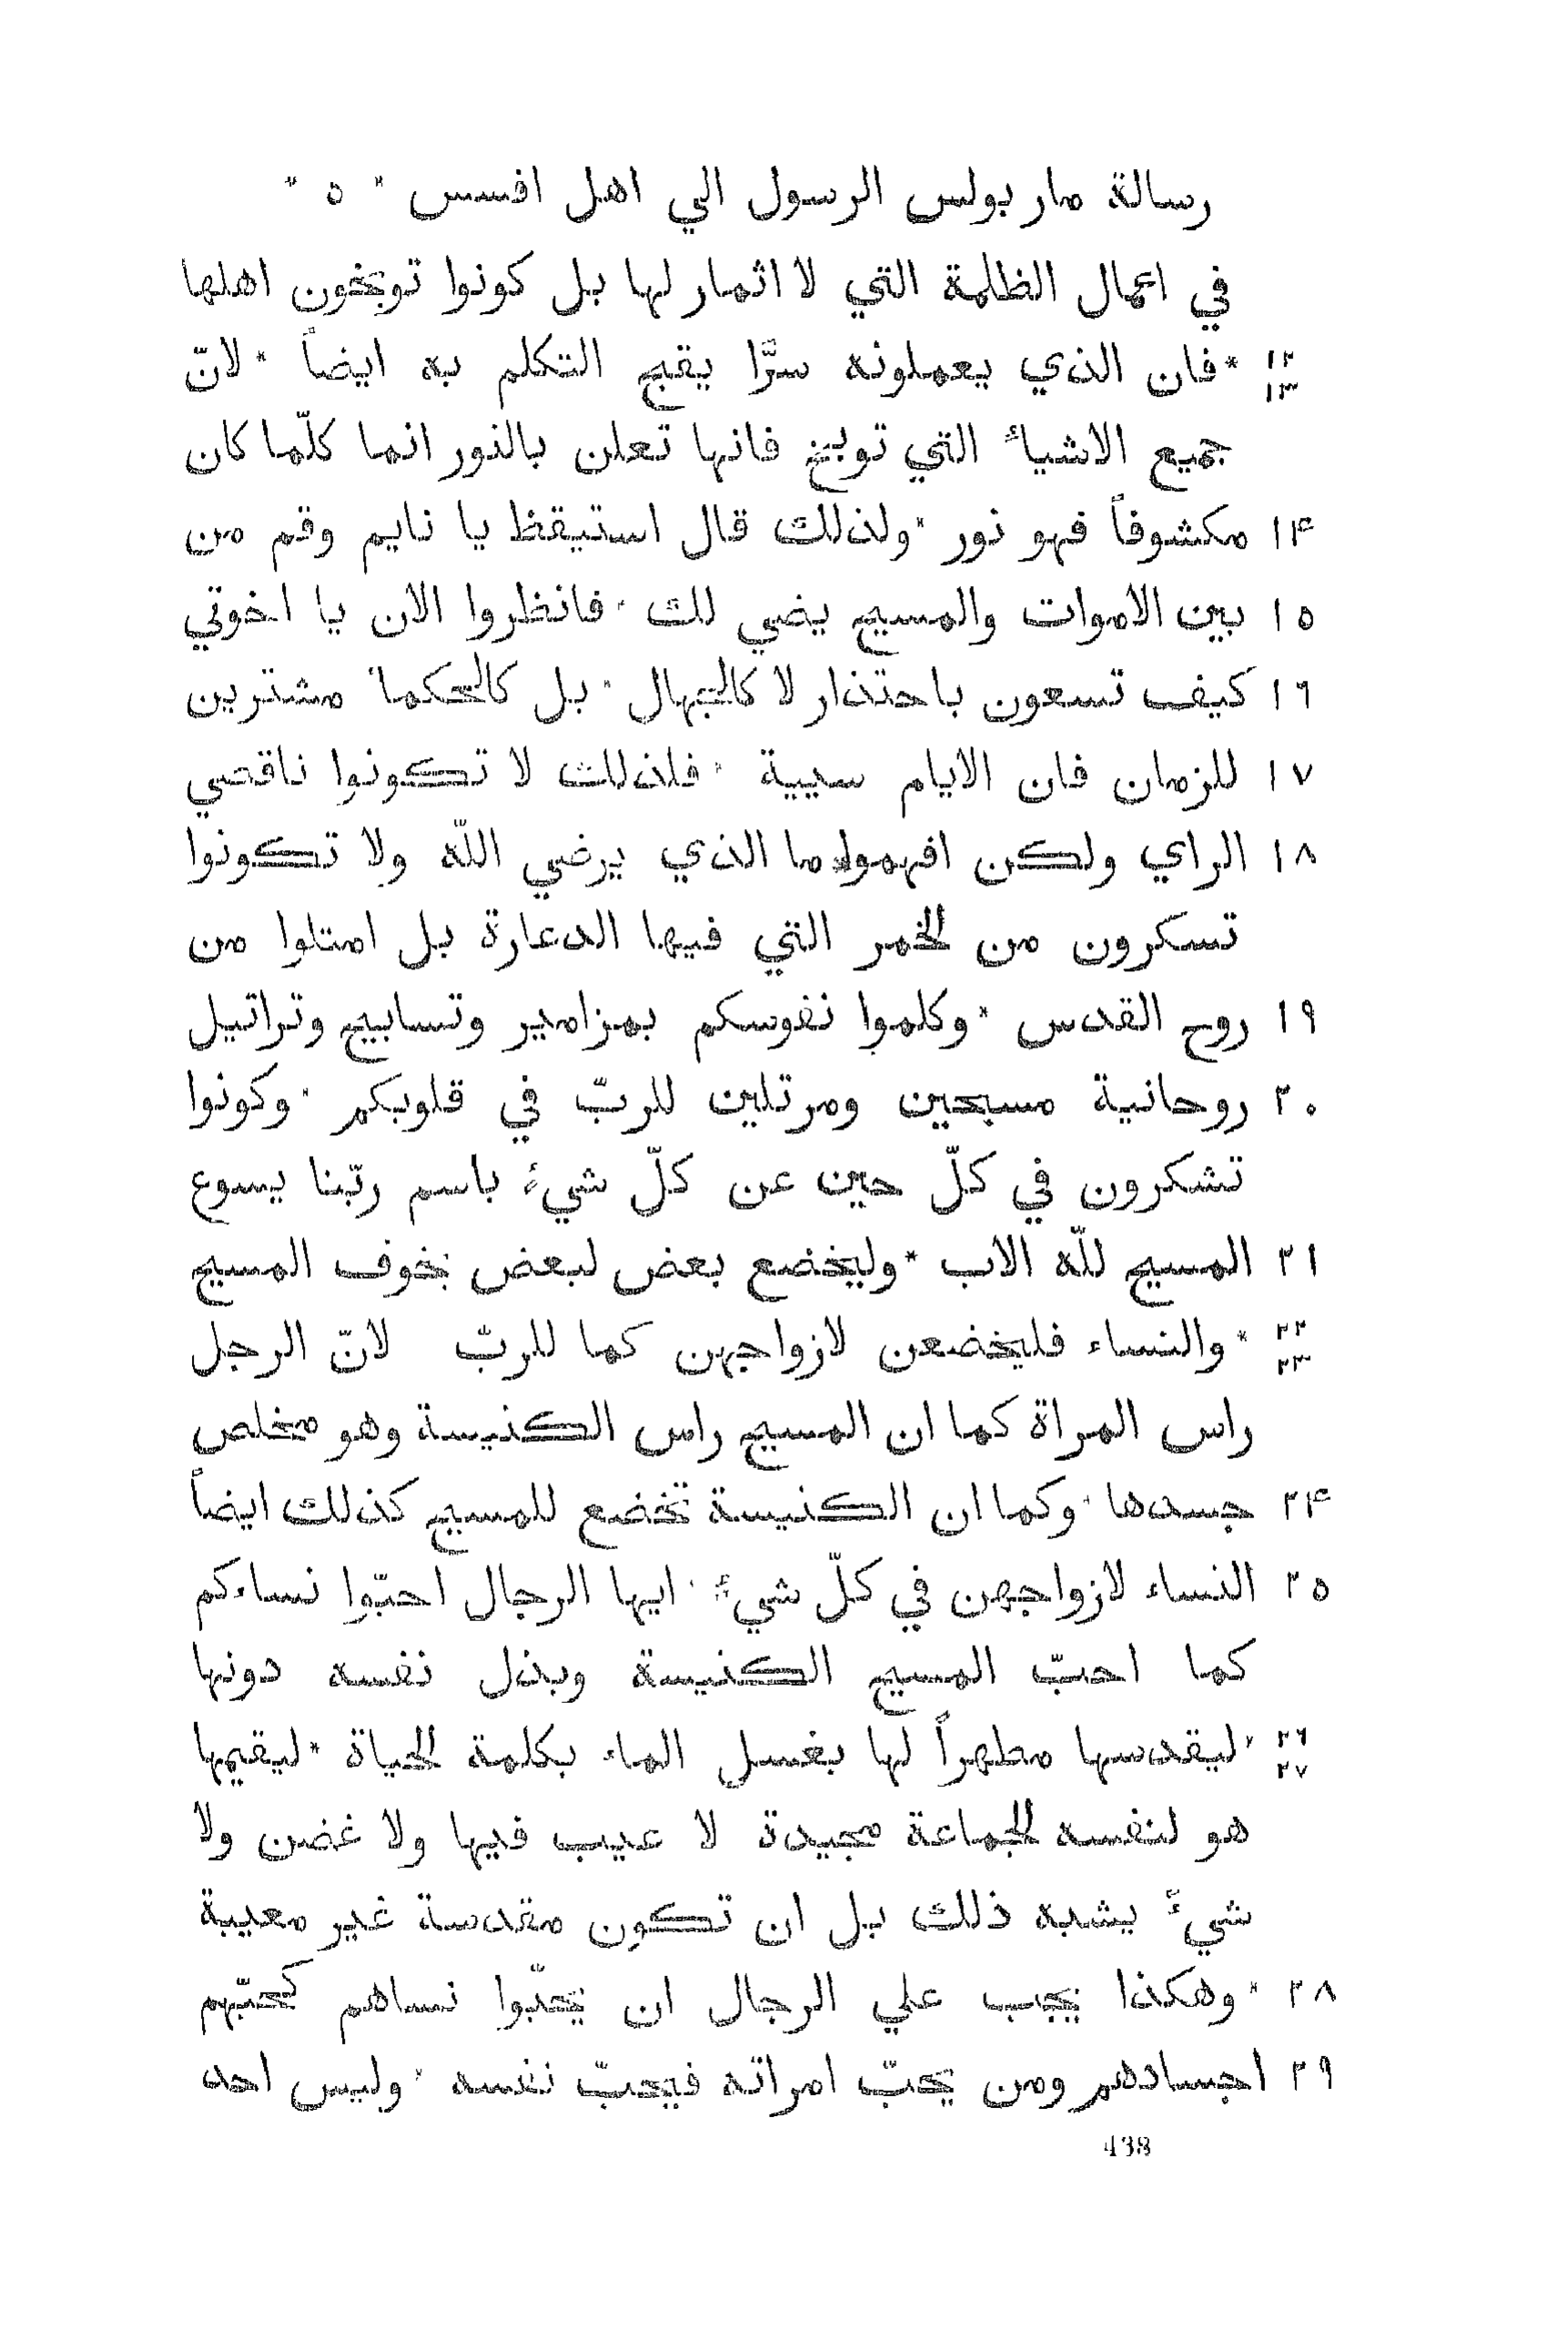 رسالة مار بولس الرسول الي اهل افسس * ٥ *
في اعمال الظلمة التي لا اثمار لها بل كونوا توبخون اهلها
١٢ ١٣ *فان الذي يعملونه سرًّا يقبح التكلم به ايضاً *لانّ
جميع الاشياءَ التي توبخ فانها تعلن بالنور انما كلّما كان
١۴ مكشوفاً فهو نور *ولذلك قال استيقظ يا نايم وقم من
١٥ بين الاموات والمسيح يضي لك *فانظروا الان يا اخوتي
١٦ كيف تسعون باحتذار لا كالجهال *بل كالحكما مشترين
١٧ للزمان فان الايام سيية *فلذلك لا تكونوا ناقصي
١٨ الراي ولكن افهموا ما الذي يرضي اللّه *ولا تكونوا
تسكرون من الخمر التي فيها الدعارة بل امتلوا من
١٩ روح القدس *وكلموا نفوسكم بمزامير وتسابيح وتراتيل
٢٠ روحانية مسبحين ومرتلين للربّ في قلوبكم *وكونوا
تشكرون في كلّ حين عن كلّ شيءٍ باسم ربّنا يسوع
٢١ المسيح للّه الاب *وليخضع بعض لبعض بخوف المسيح
٢٢ ٢٣ *والنساء فليخضعن لازواجهن كما للربّ لانّ الرجل
راس المراة كما ان المسيح راس الكنيسة وهو مخلص
٢۴ جسدها *وكما ان الكنيسة تخضع للمسيح كذلك ايضاً
٢٥ النساء لازواجهن في كلّ شيءٍ *ايها الرجال احبّوا نساءكم
كما احبّ المسيح الكنيسة وبذل نفسه دونها
٢٦ ٢٧ *ليقدسها مطهراً لها بغسل الماء بكلمة الحياة *ليقيمها
هو لنفسه الجماعة مجيدة لا عيب فيها ولا غضن ولا
شيءَ يشبه ذلك بل ان تكون مقدسة غير معيبة
٢٨ *وهكذا يجب علي الرجال ان يحبّوا نساهم كحبّهم
٢٩ اجسادهم ومن يحبّ امراته فيحبّ نفسه *وليس احد
438